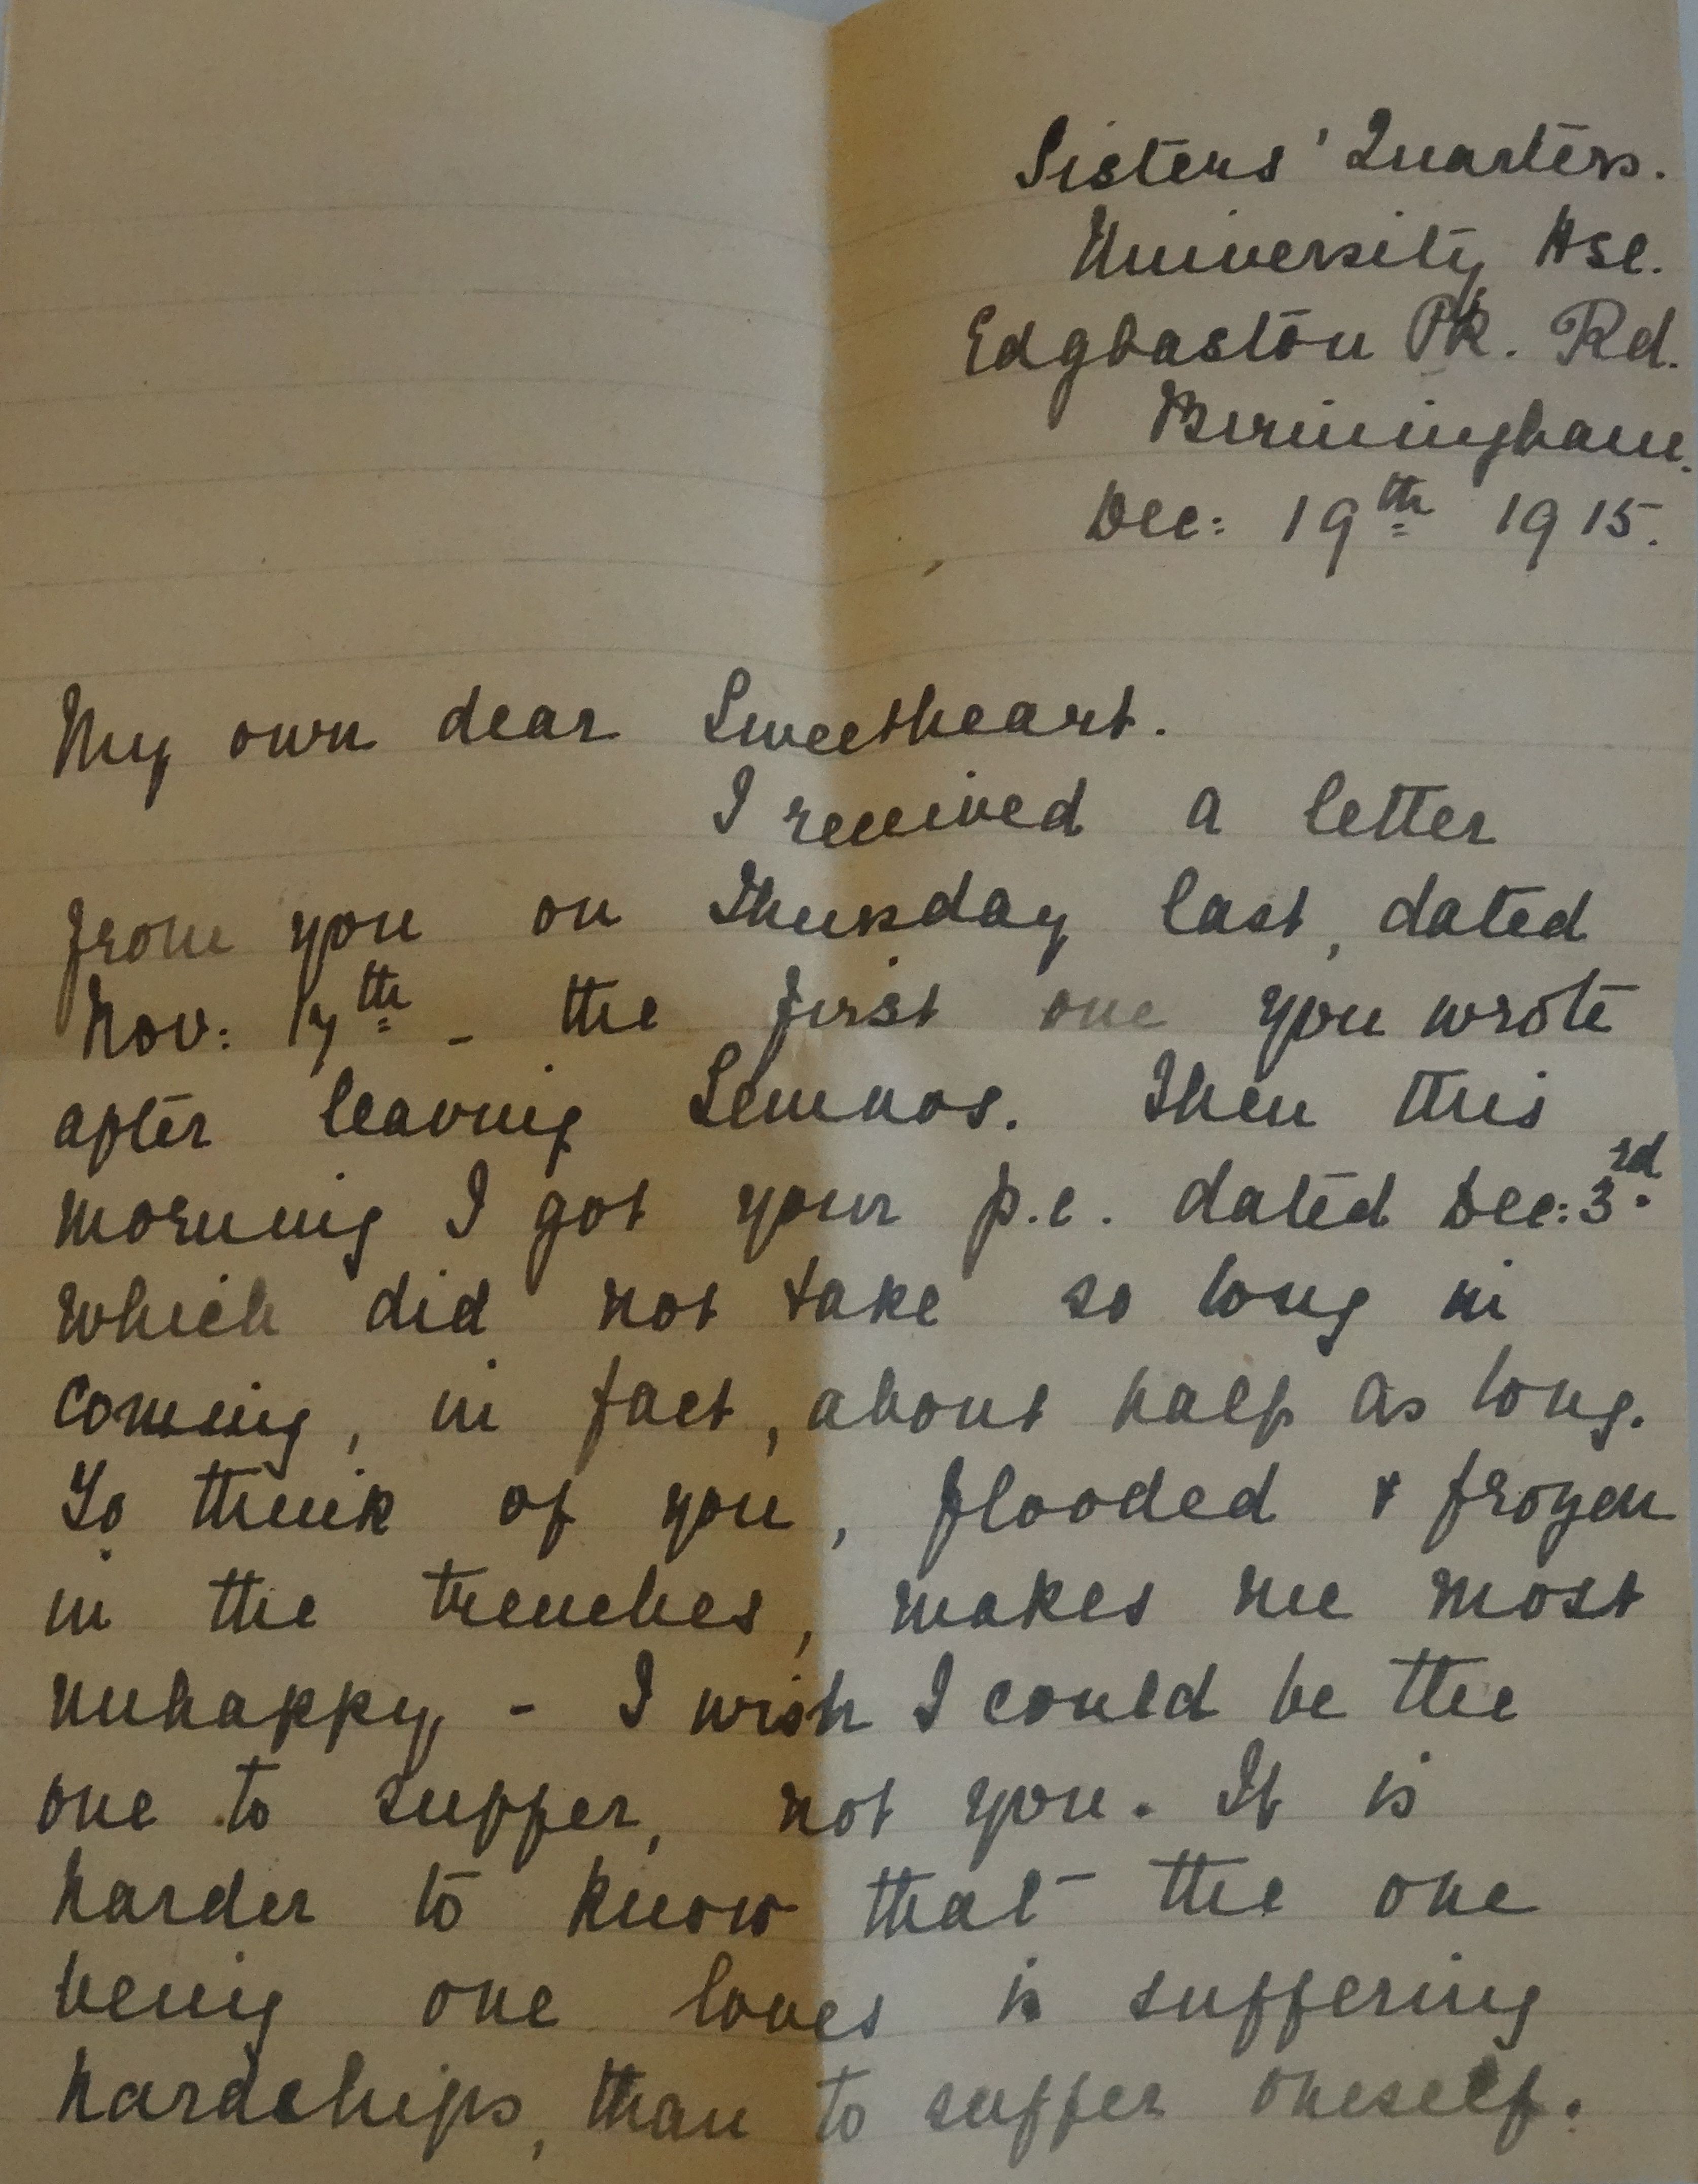 Sisters' Quarters.
University Hse.
Edgbaston Pk. Rd.
Birmingham.
Dec: 19th 1915.
My own dear Sweetheart.
I received a letter
from you on Thursday last, dated
Nov: 17th - the first one you wrote
after leaving Lemnos. Then this
morning I got your p.c. dated Dec: 3rd.
which did not take so long in
coming, in fact, about half as long.
To think of you, flooded & frozen
in the trenches, makes me most
unhappy, - I wish I could be the
one to suffer, not you. It is
harder to know that the one
being one loves is suffering
hardships, than to suffer oneself.